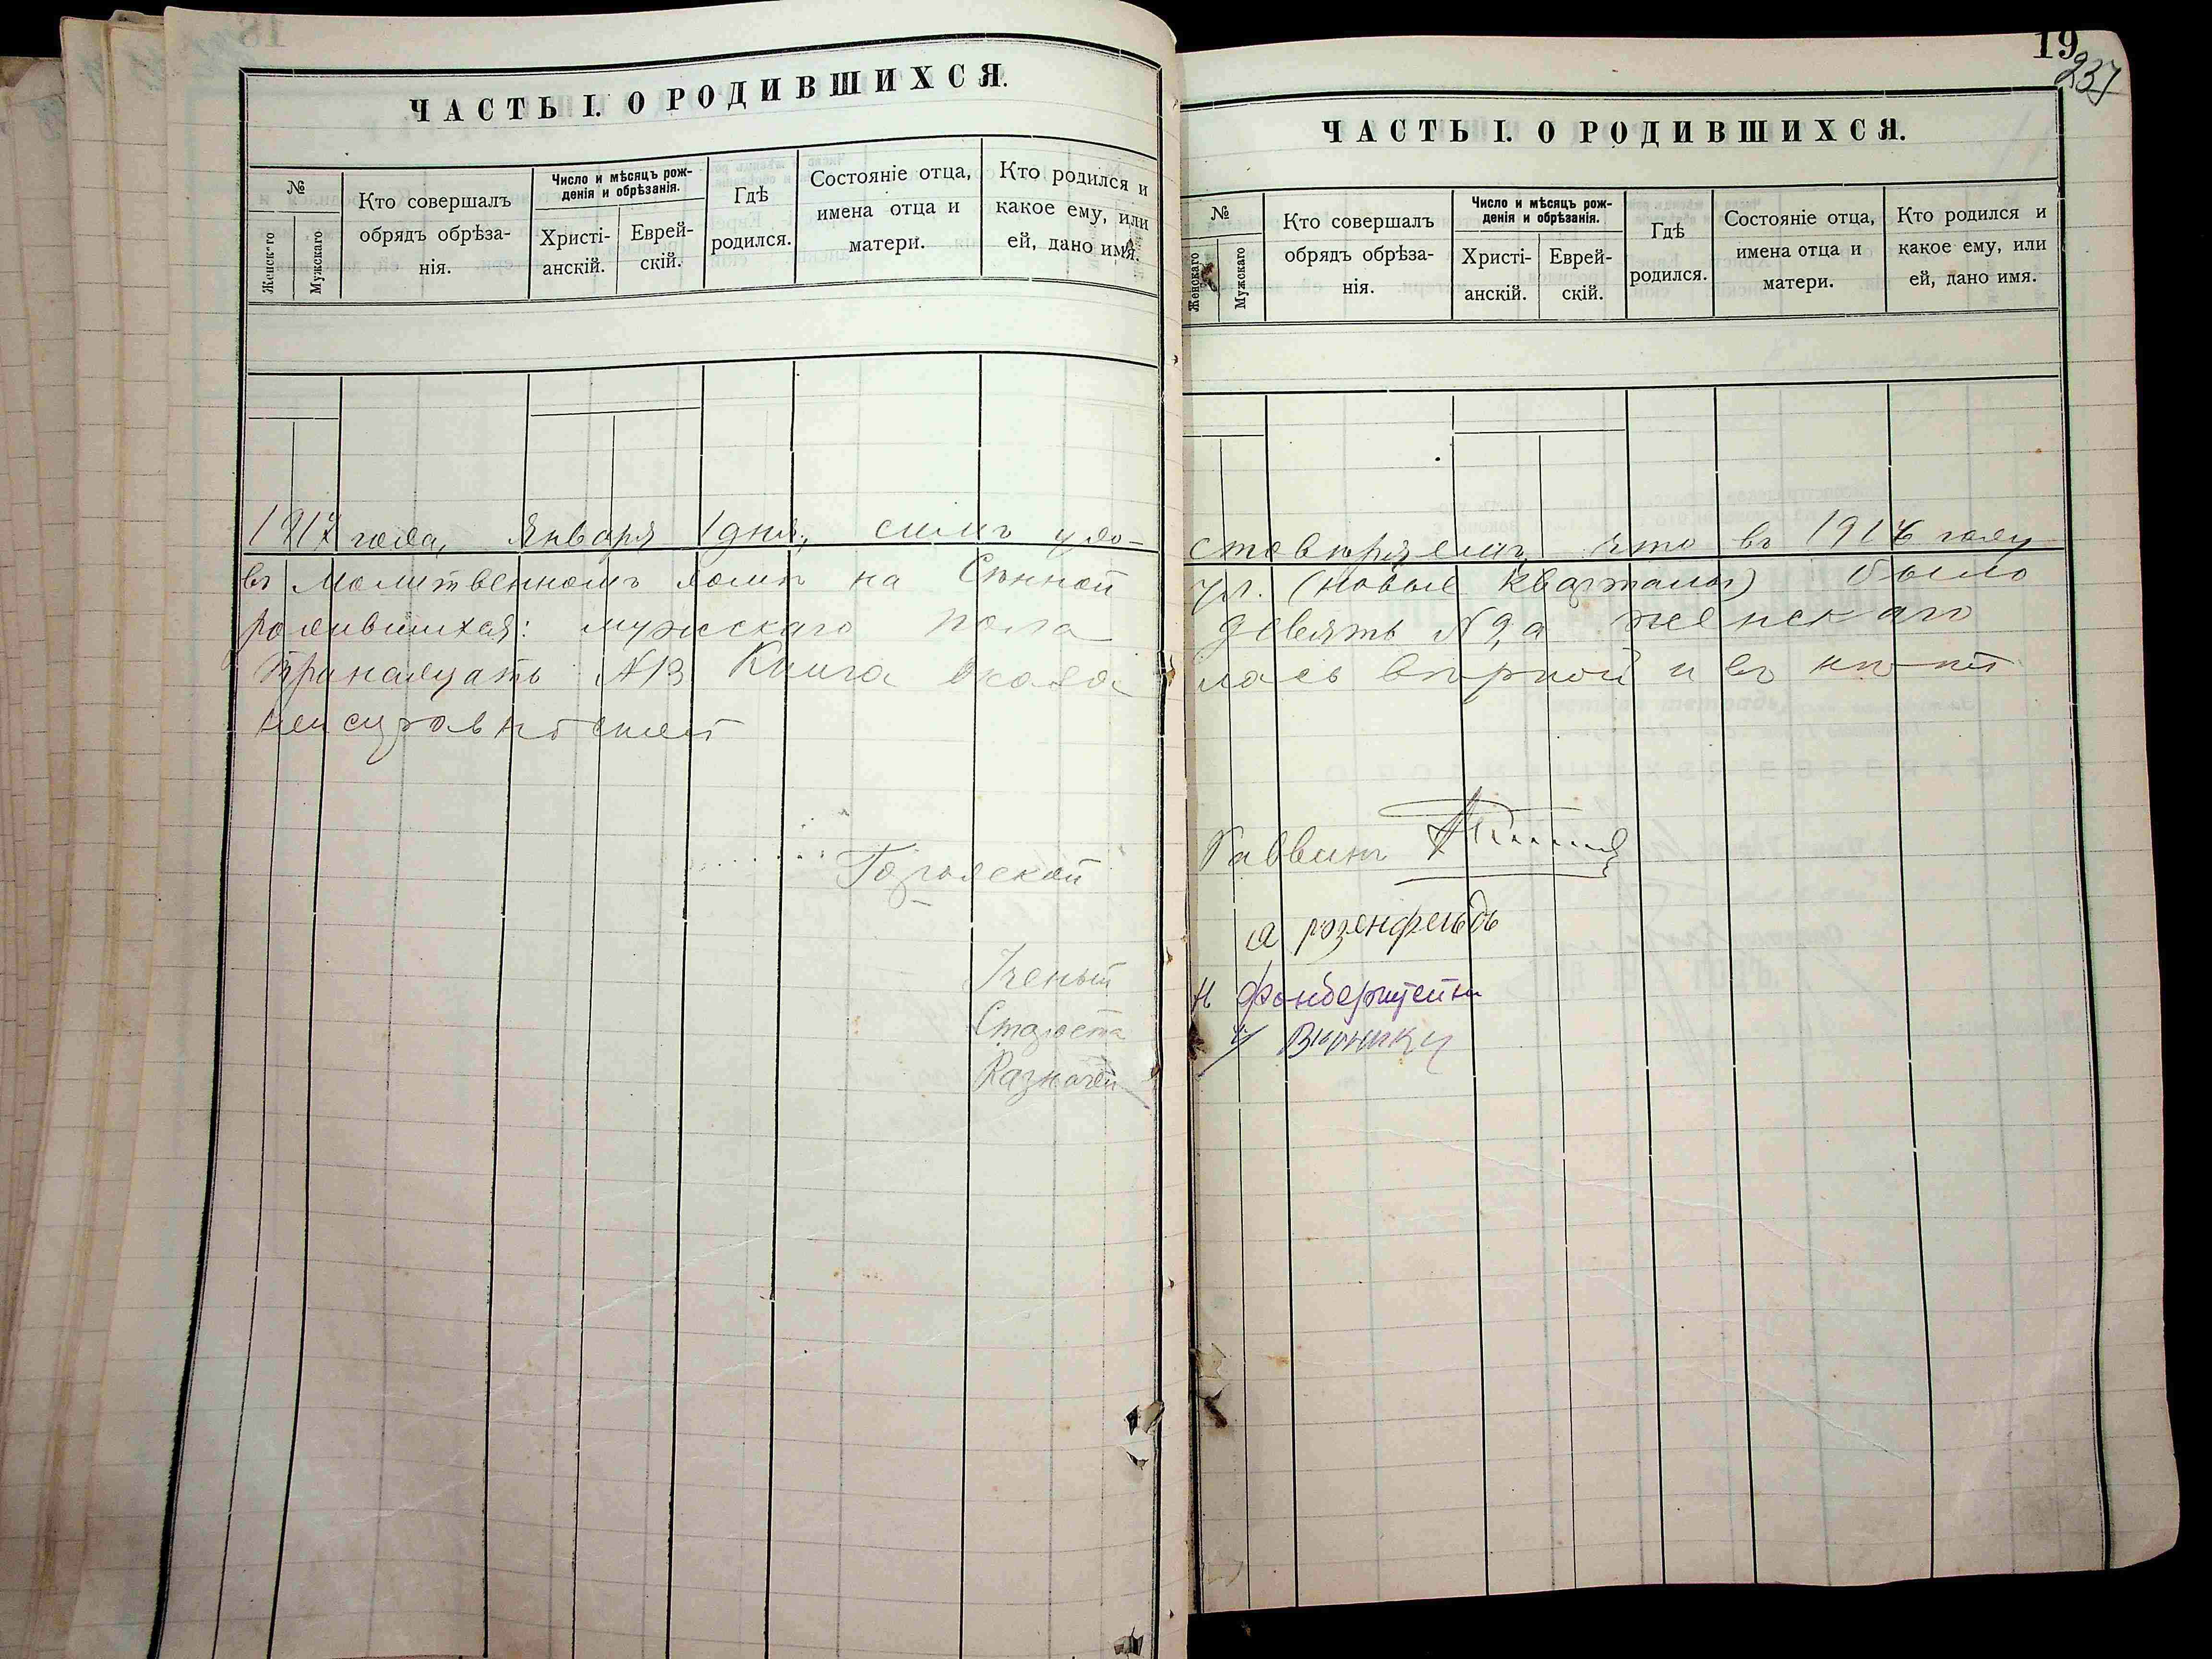 ЧАСТЬ I. О РОДИВШИХСЯ.
№
Женскаго
Мужскаго
Кто совершалъ обрядъ обрѣза-
нія.
Число и мѣсяцъ рож-
денія и обрѣзанія.
Христі-
анскій.
Еврей-
скій.
Гдѣ
родился.
Состояніе отца,
имена отца и
матери.
Кто родился и
какое ему, или
ей, дано имя.
19
237
ЧАСТЬ I. О РОДИВШИХСЯ.
№
Женскаго
Мужскаго
Кто совершалъ
обрядъ обрѣза-
нія.
Число и мѣсяцъ рож-
денія и обрѣзанія.
Христі-
анскій.
Еврей-
скій.
Гдѣ
родился.
Состояніе отца,
имена отца и
матери.
Кто родился и
какое ему, или
ей, дано имя.
1917 года, Января 1 дня, симъ удо-
стовѣряемъ что въ 1916 году
въ Молитвенномъ домѣ на Сѣнной
ул. (новые кварталы) было
родившихся: мужскаго пола
девять №9, а женскаго
тринадцать №13 Книга оказа
лась вѣрной и въ ней нѣтъ
неисправностей
Городской
Раввинъ
а розенфельдъ
Ученый
Н
Староста
Казначей